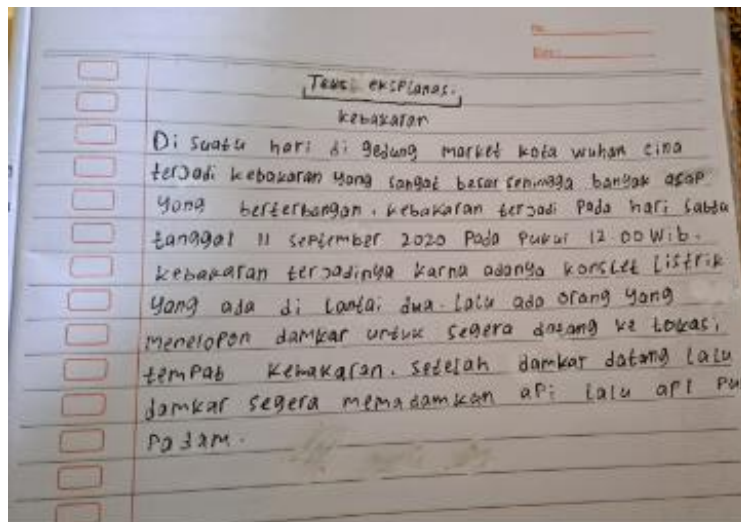 No.
Date :
Teks: eksplanasi.
kebakaran
Di suatu hari di gedung market kota wuhan cina
terjadi kebakaran yang sangat besar sehingga banyak asap
yang berterbangan. kebakaran terjadi pada hari sabtu
tanggal 11 september 2020 pada pukul 12.00 Wib.
kebakaran terjadinya karna adanya konslet listrik
yang ada di lantai dua. lalu ada orang yang
menelopon damkar untuk segera datang ke lokasi
tempat kebakaran. setelah damkar datang lalu
damkar segera memadamkan api lalu api pu
padam.